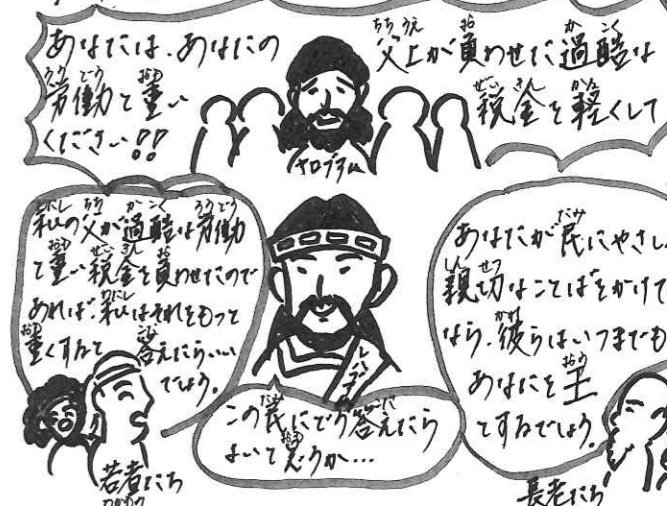 あなたは、あなたの
父上が負わせた過酷な
労働と重い
税金を軽くして
ください!!
ヤロブアム
私の父が過酷な労働
と重い税金を負わせたので
あれば、私はそれをもっと
重くすると答えたらいい
でしょう。
若者たち
レハブアム
この民にどう答えたら
よいと思うか…
あなたが民にやさしく
親切なことばをかけて
なら、彼らはいつまでも
あなたを王
とするでしょう。
長老たち